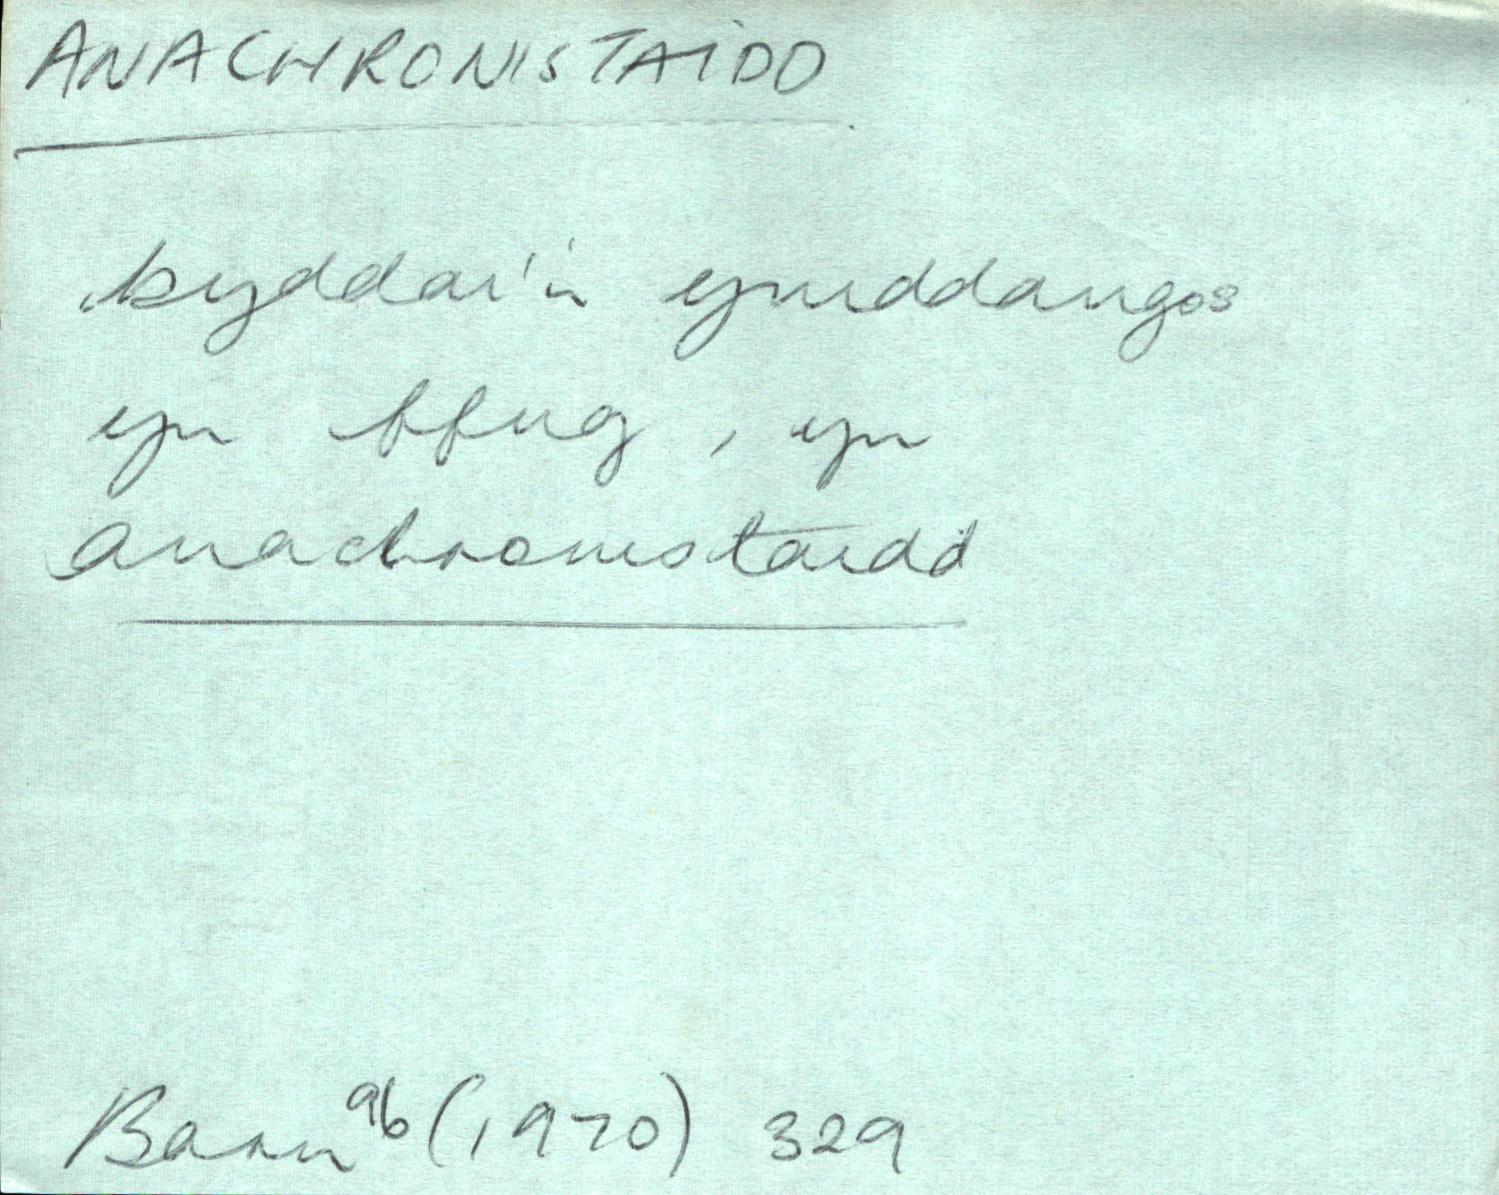 ANACHRONISTAIDD
byddai'n ymddangos
yn ffug, yn
anachronistaidd
Barn 96 (1970) 329